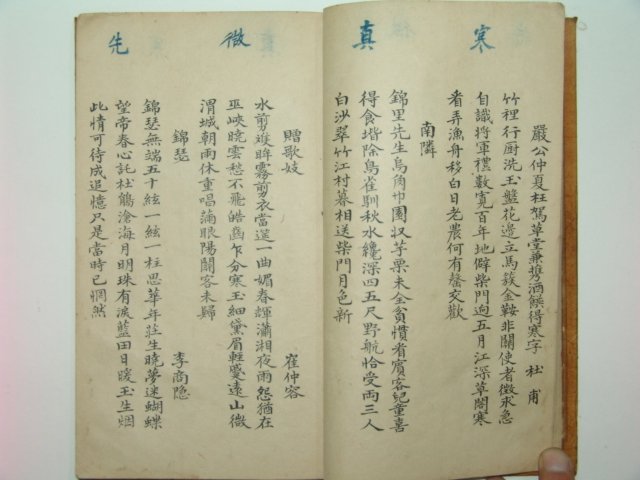 寒
嚴公仲夏枉駕草堂兼携酒饌得寒字 杜甫
竹裡行厨洗玉盤花邊立馬簇金鞍非關使者徵求急
自識將軍禮數寬百年地僻柴門迥五月江深草閣寒
看弄漁舟移白日老農何有罄交歡
真
南隣
錦里先生烏角巾園收芋栗未全貧慣看賓客兒童喜
得食堦除鳥雀馴秋水纔深四五尺野航恰受兩三人
白沙翠竹江村暮相送柴門月色新
微
贈歌妓 崔仲容
水剪雙眸霧剪衣當筵一曲媚春輝瀟湘夜雨怨猶在
巫峽曉雲愁不飛皓齒乍分寒玉細黛眉輕蹙遠山微
渭城朝雨休重唱滿眼陽關客未歸
先
錦瑟 李商隱
錦瑟無端五十絃一絃一柱思華年莊生曉夢迷蝴蝶
望帝春心託杜鵑滄海月明珠有淚藍田日暖玉生烟
此情可待成追憶只是當時已惘然